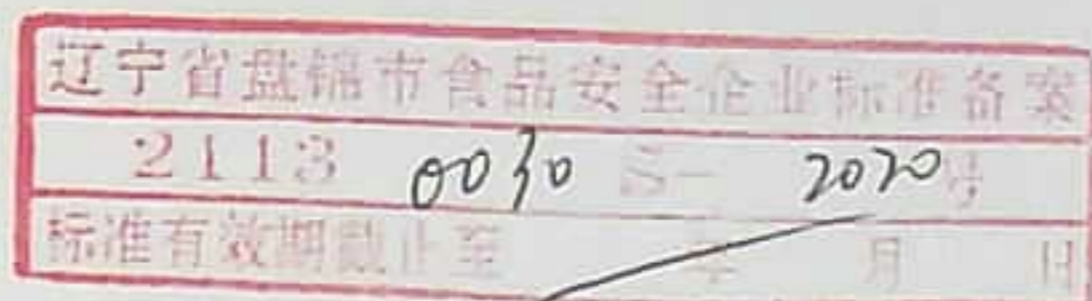 辽宁省盘锦市食品安全企业标准备案
2113 0030 S- 2020号
标准有效期截止至 年 月 日